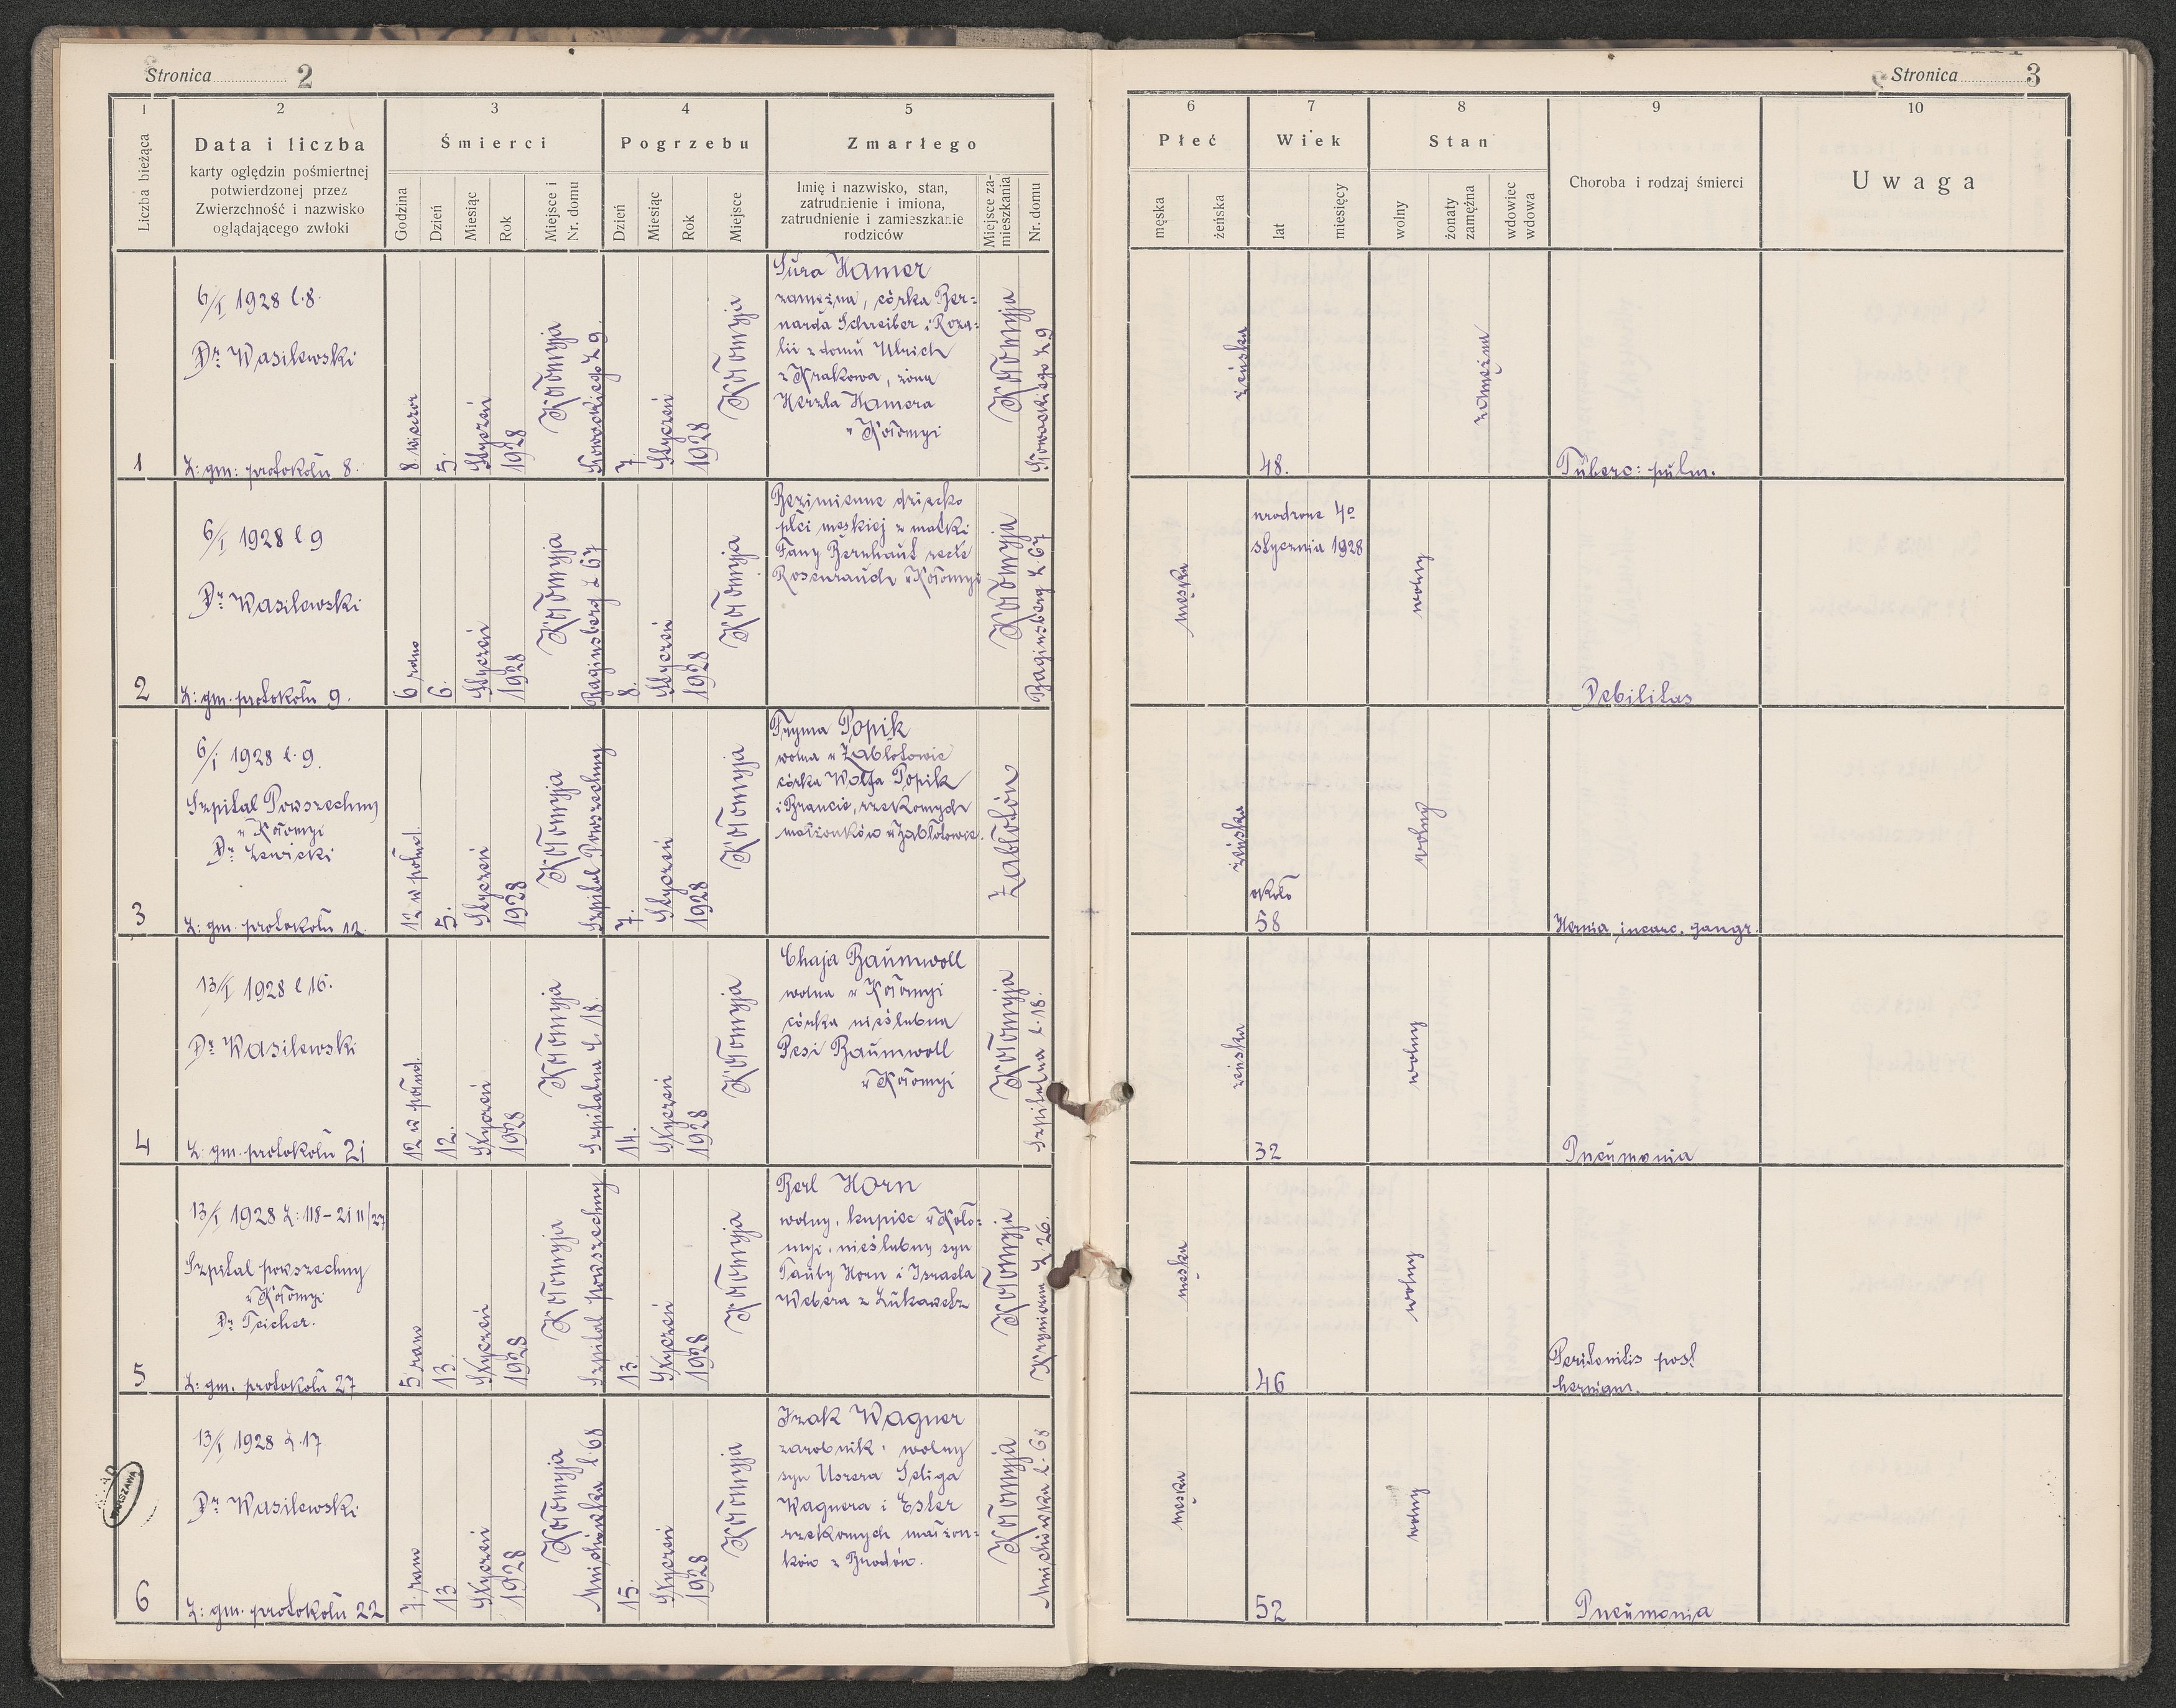 Stronica 2
1
2
3
4
5
Liczba bieżąca
Data i liczba
karty oględzin pośmiertnej
potwierdzonej przez
Zwierzchność i nazwisko
oglądającego zwłoki
Śmierci
Godzina
Dzień
Miesiąc
Rok
Miejsce i
Nr. domu
Pogrzebu
Dzień
Miesiąc
Rok
Miejsce
Zmarłego
Imię i nazwisko, stan,
zatrudnienie i imiona,
zatrudnienie i zamieszkanie
rodziców
Miejsce za-
mieszkania
Nr. domu
Stronica 3
6
7
8
9
10
Płeć
męska
żeńska
Wiek
lat
miesięcy
Stan
wolny
żonaty
zamężna
wdowiec
wdowa
Choroba i rodzaj śmierci
Uwaga
1
6/I 1928 l.8.
Dr. Wasilewski
L: gm: protokołu 8.
8 wieczor
5.
Styczeń
1928
Kołomyja
Słowackiego L 9.
7.
Styczeń
1928
Kołomyja
Sura Hamer
zamężna, córka Ber=
narda Schreiber i Roza=
lii z domu Ulrich
z Krakowa, żona
Herzla Hamera
w Kołomyi
Kołomyja
Słowackiego L 9
żeńska
48.
zamężna
Tuberc: pulm.
2
6/I 1928 l 9
Dr. Wasilewski
L: gm. protokołu 9.
6 rano
6.
Styczeń
1928
Kołomyja
Baginsberg L 67
8.
Styczeń
1928
Kołomyja
Bezimienne dziecko
płci męskiej z matki
Fany Bernhaut recte
Rosenrauch w Kołomyi
Kołomyja
Baginsberg L. 67
męska
urodzone 4o
stycznia 1928
wolny
Debilitas
3
6/I 1928 l. 9.
Szpital Powszechny
w Kołomyi
Dr. Lewicki
L: gm. protokołu 12.
12 w połud.
5.
Styczeń
1928
Kołomyja
Szpital Powszechny
7.
Styczeń
1928
Kołomyja
Fryma Popik
wolna w Zabłotowie
córka Wolfa Popik
i Brancie, rzekomych
małżonków w Zabłotowie.
Zabłotów
żeńska
około
58
wolny
Hernia incarc. gangr.
4
13/I 1928 l 16.
Dr. Wasilewski
L: gm. protokołu 21
12 w połud.
12.
Styczeń
1928
Kołomyja
Szpitalna L. 18.
14.
Styczeń
1928
Kołomyja
Chaja Baumwoll
wolna w Kołomyi
córka nieślubna
Pesi Baumwoll
w Kołomyi
Kołomyja
Szpitalna l. 18.
żeńska
32
wolny
Pneumonia
5
13/I 1928 L: 118 – 2111/27
Szpital powszechny
w Kołomyi
Dr. Teicher.
L: gm. protokołu 27
5 rano
13.
Styczeń
1928
Kołomyja
Szpital powszechny
13.
Styczeń
1928
Kołomyja
Berl Horn
wolny, kupiec w Koło=
myi, nieślubny syn
Tauby Horn i Israela
Webera z
Kołomyja
L. 26.
męska
46
wolny
Peritonitis post
6
13/I 1928 L.17
Dr. Wasilewski
L: gm. protokołu 22
7. rano
13.
Styczeń
1928
Kołomyja
Mnichówka l. 68
15.
Styczeń
1928
Kołomyja
Izak Wagner
zarobnik, wolny
syn Uszera Seliga
Wagnera i Ester
rzekomych małżon=
ków z Brodów.
Kołomyja
Mnichówka l. 68
męska
52
wolny
Pneumonia
WARSZAWA